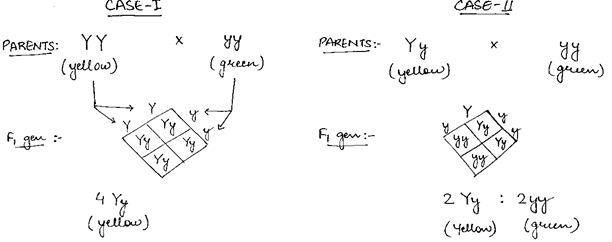 CASE-I
PARENTS: YY x yy
(yellow) (green)
Y y
Y Yy y
F₁ gen :- Yy Yy
Yy
4 Yy
(yellow)
CASE-II
PARENTS:- Yy x yy
(yellow) (green)
Y y
y Yy y
F₁ gen:- yy Yy
yy
2 Yy : 2yy
(Yellow) (green)